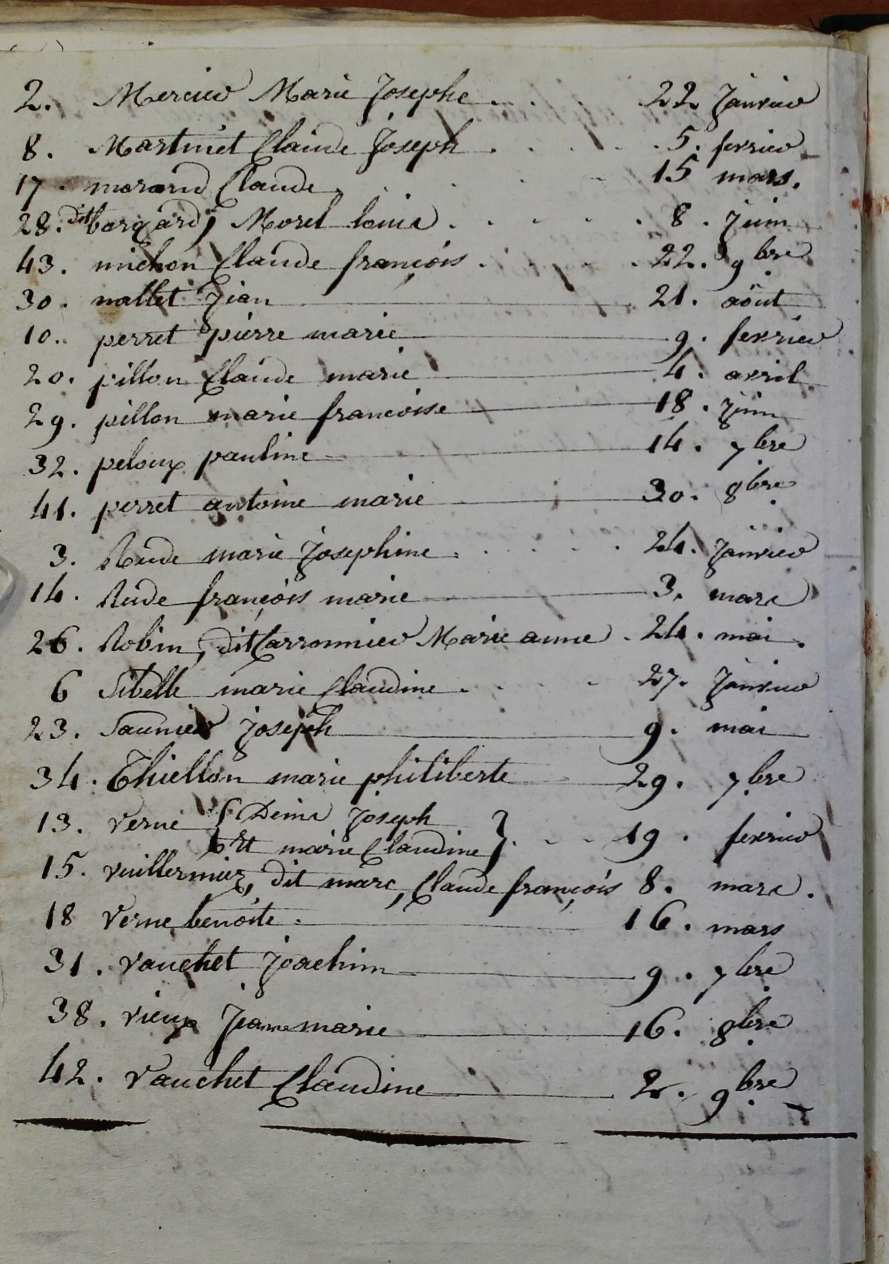 2. Mercier Marie Josephe . . . 22 janvier
8. Martinet Claude Joseph . . . . . 5. fevrier
17. morand Claude . . . . . 15 mars.
28. dit borgard, Morel louis . . . . . 8. juin
43. michon Claude françois . . . . 22. 9bre
30. nallet jean 21. août
10. perret pierre marie 9. fevrier
20. pillon Claude marie 4. avril
29. pillon marie francoise 18. juin
32. peloux pauline 14. 7bre
41. perret antoine marie 30. 8bre
3. Rude marie josephine . . . . . 24. janvier
14. Rude françois marie 3. mars
26. Robin, dit Carronnier Marie anne . 24. mai.
6 Sibelle marie Claudine . . . . 27. janvier
23. Saunier joseph 9. mai
34. Thiellon marie philiberte 29. 7bre
13. verne { Denis Joseph
et marie Claudine } . . . 19. fevrier
15. vuillermier, dit marc, Claude françois 8. mars.
18 Verne benoite . 16. mars
31. vauchet joachim 9. 7bre
38. vieux jeanne marie 16. 8bre
42. vauchet Claudine 2. 9bre